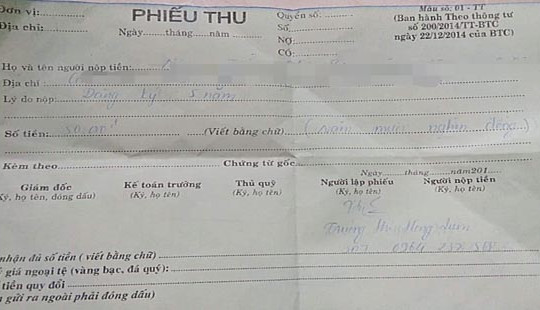 Đơn vị: PHIẾU THU Quyển số: Mẫu số: 01 - TT
Địa chỉ: Ngày tháng năm Số: (Ban hành Theo thông tư
NỢ: số 200/2014/TT-BTC
CÓ: ngày 22/12/2014 của BTC)
Họ và tên người nộp tiền:
Địa chỉ:
Lý do nộp: Đăng ký 5 năm
Số tiền: (Viết bằng chữ) (năm mươi nghìn đồng)
Kèm theo Chứng từ gốc
Ngày tháng năm 201
Giám đốc Kế toán trưởng Thủ quỹ Người lập phiếu Người nộp tiền
Ký, họ tên, đóng dấu) (Ký, họ tên) (Ký, họ tên) (Ký, họ tên)
Trương
nhận đủ số tiền ( viết bằng chữ)
giá ngoại tệ (vàng bạc, đá quý):
tiền quy đổi
gửi ra ngoài phải đóng dấu)